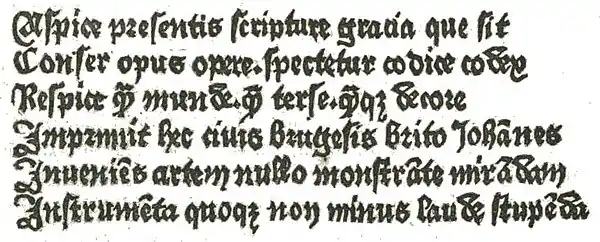 Aspice presentis scripture gracia que sit
Confer opus opere. spectetur codice codex
Respice q̃ munde. q̃ terse. q̃qꝫ decore
Imprimit hec ciuis brugẽsis brito Johãnes
Inueniẽs artem nullo monstrãte mirãdam
Instrumẽta quoqꝫ non minus laude stupẽda